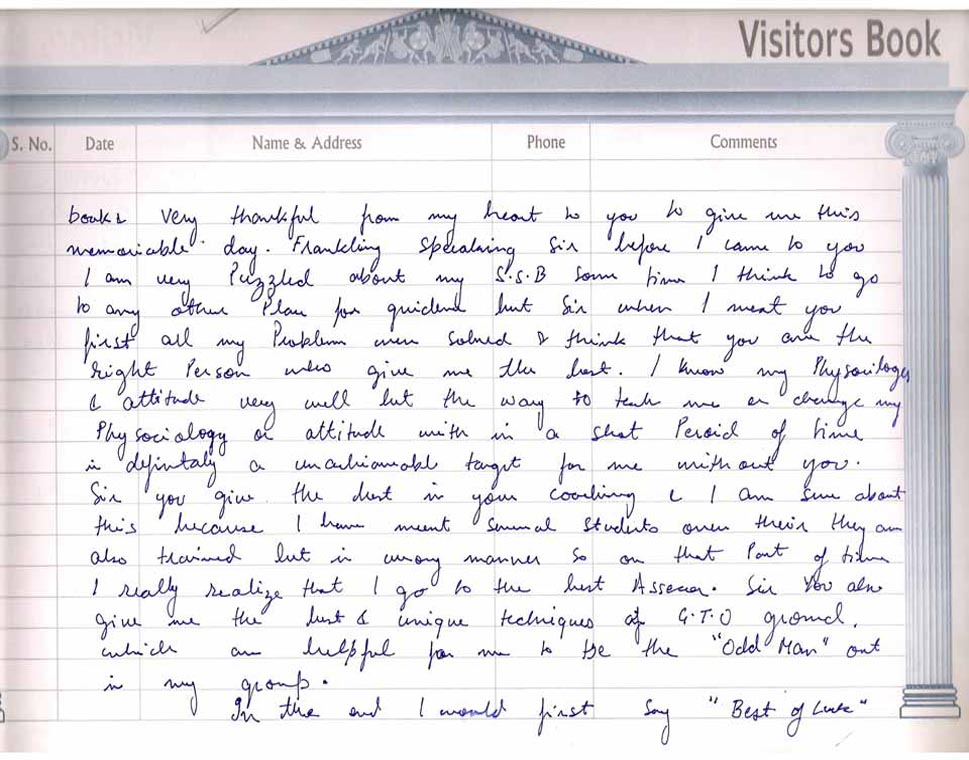 Visitors Book
S. No. Date Name & Address Phone Comments
very thankful from my heart to you to give me this
memoriable day. Frankling Specalning Sir before I came to you
I am very Puzzled about my S.S.B some time I think to go
to any other Plan for guidend but Sir when I meat you
first all my Problem were solved & think that you are the
Right Person who give me the best. I know my Physocilogy
& attitude very well but the way to teak me or change my
Physociology or attitude with in a shot Peroid of time
is definitaly a target for me without you.
Sir you give the best in your coaching & I am sure about
this because I have meent several Students over their they are
also trained but in wrong manner so on that Part of time
I really realize that I go to the best Assecor. Sir You also
give me the best & unique techniques of G.T.O ground.
which are helpful for me to be the "Odd Man" out
in my group.
In the end I would first Say "Best of Luck"